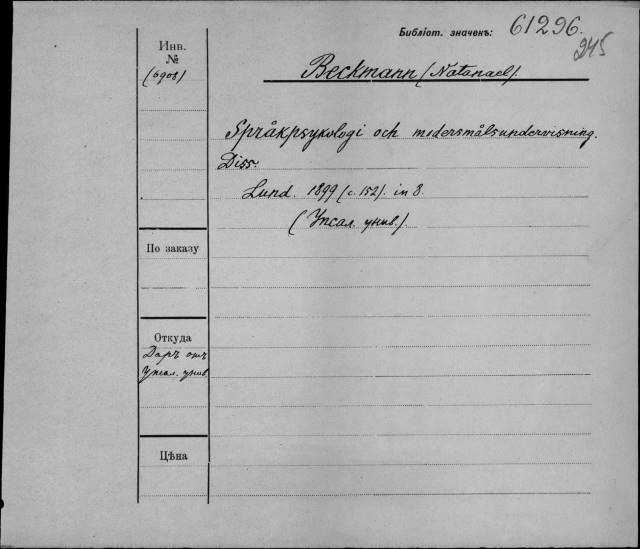 Библіот. значенъ: 61296.
245
Инв.
№
(6908)
Beckmann (Natanael).
Språkpsykologi och modersmålsundervisning.
Diss.
Lund. 1899 (c. 152). in 8.
(Упсал. унив.).
По заказу
Откуда
Даръ отъ
Упсал. унив.
Цѣна